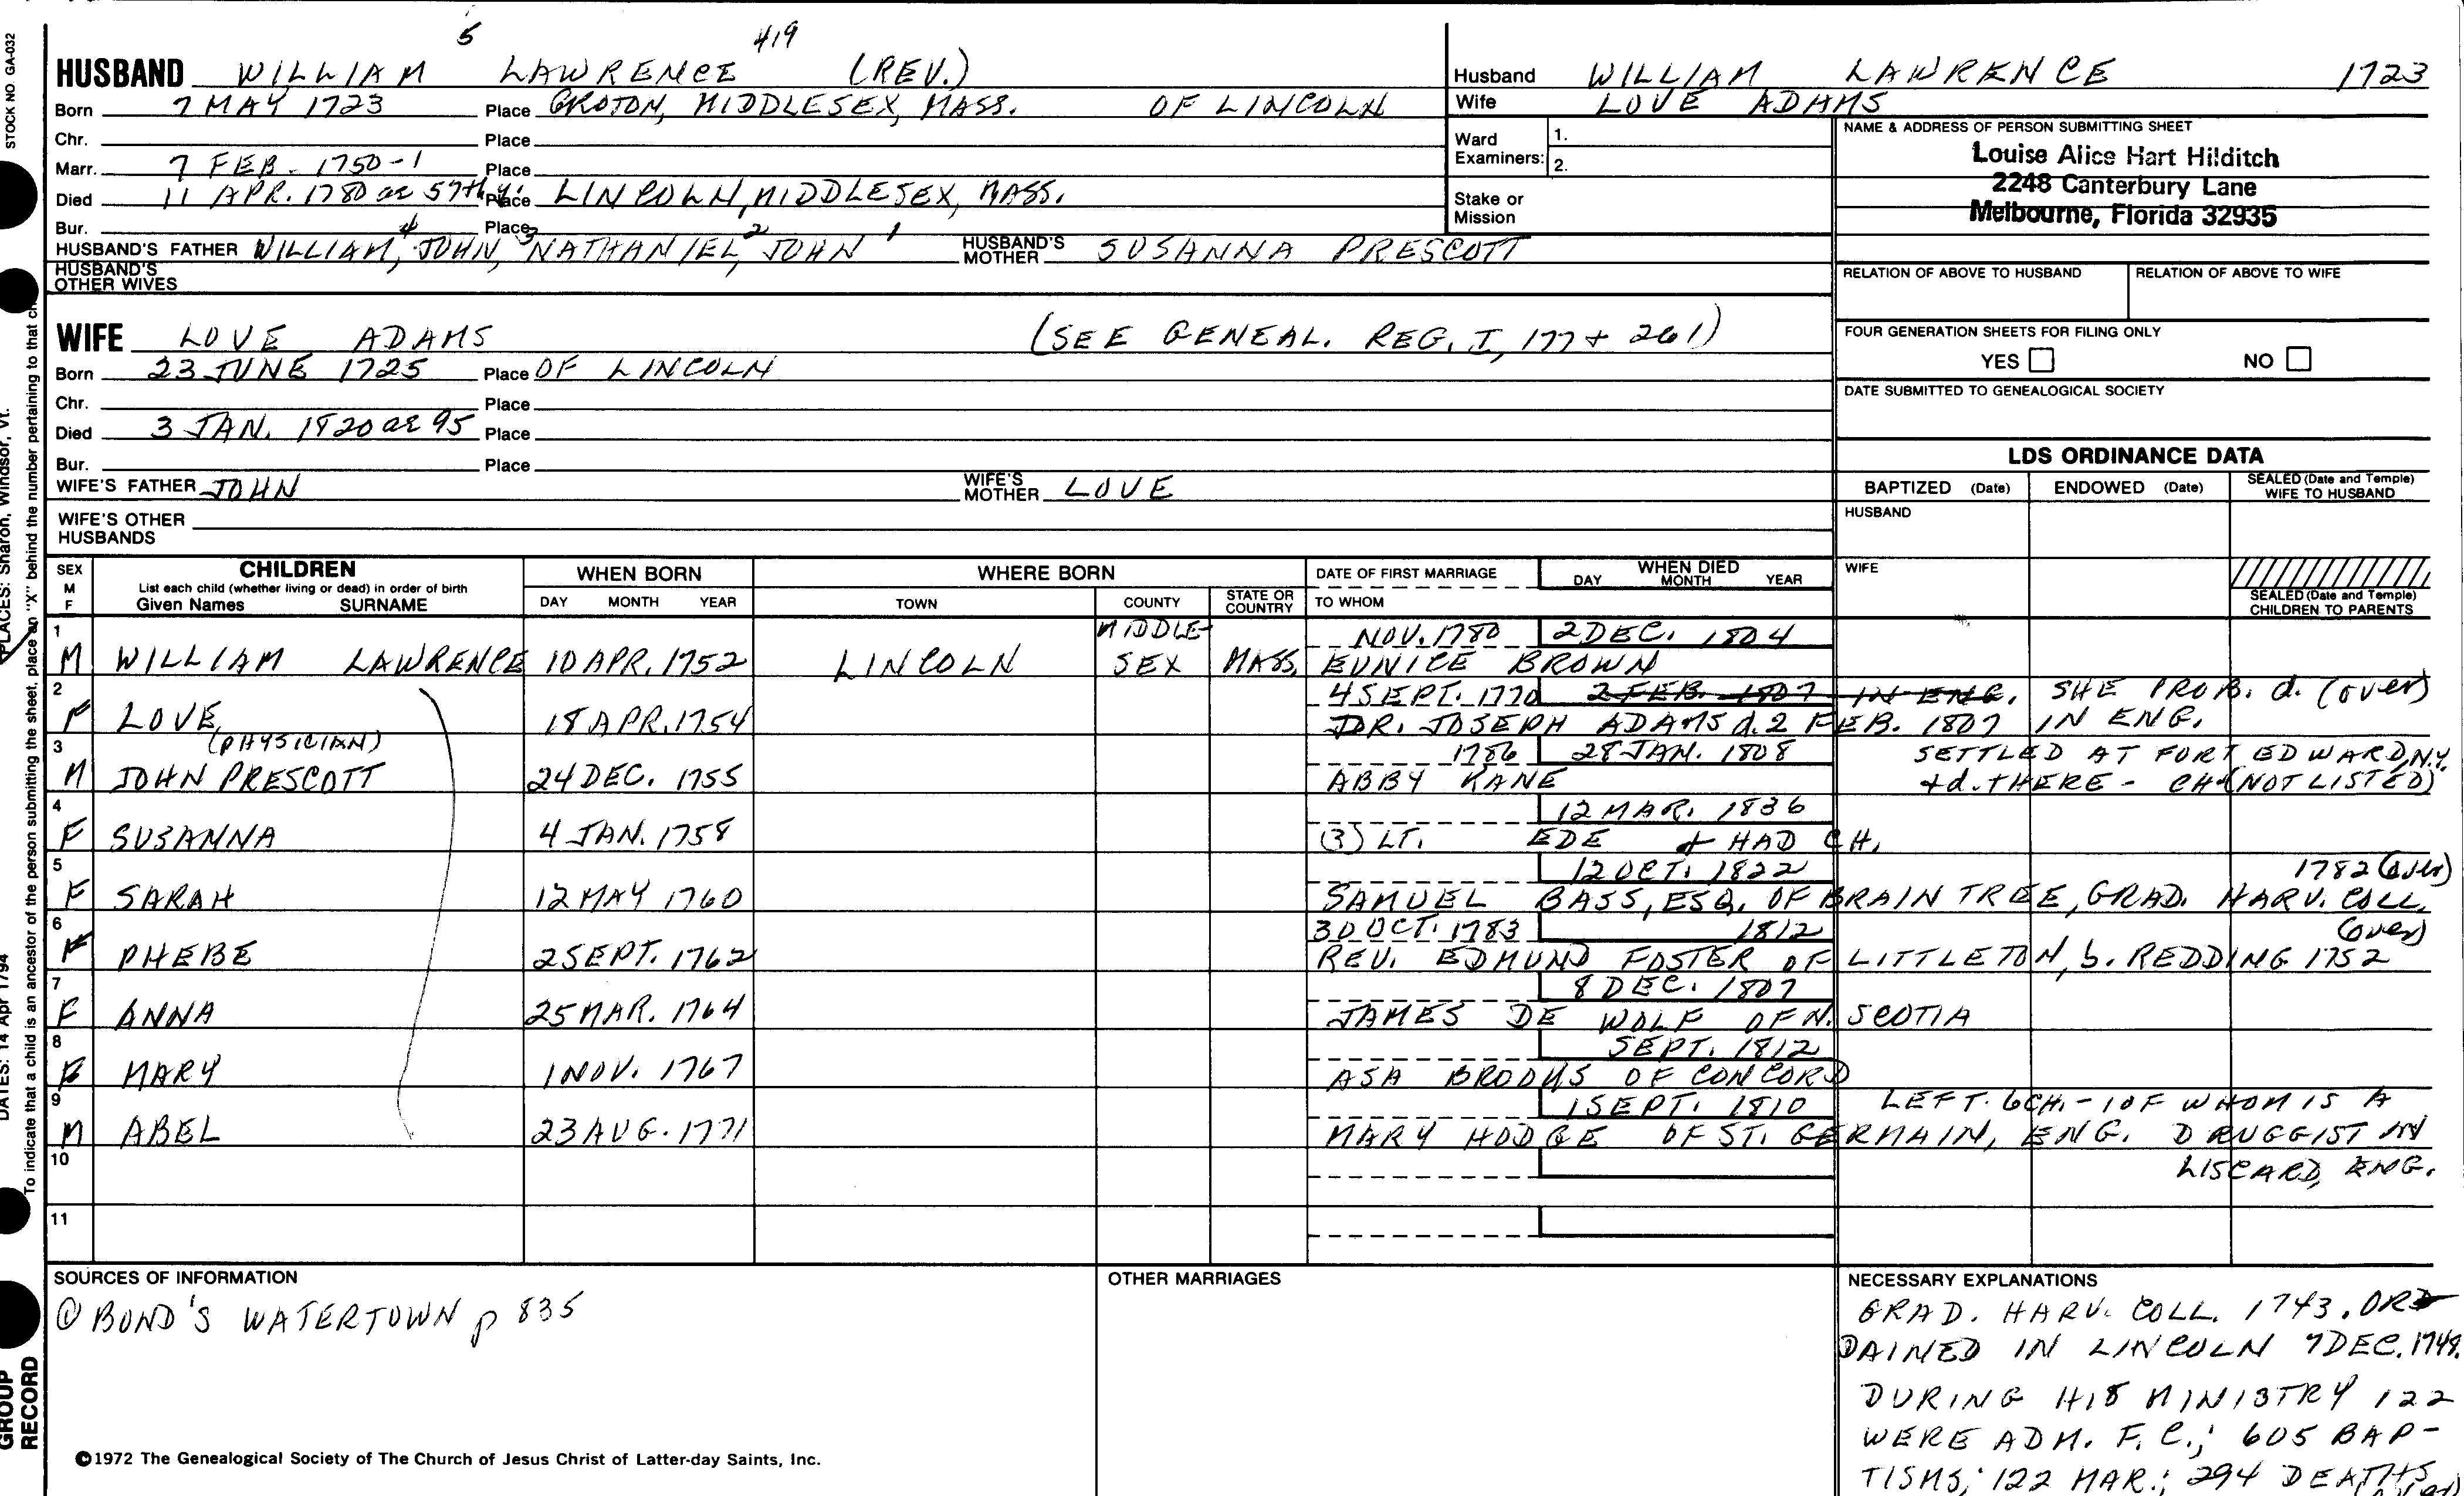 5 419
HUSBAND WILLIAM LAWRENCE (REV.)
Born 7 MAY 1723 Place GROTON, MIDDLESEX, MASS. OF LINCOLN
Chr. Place
Marr. 7 FEB. 1750-1 Place
Died 11 APR. 1780 ae 57th y. Place LINCOLN, MIDDLESEX, MASS.
Bur. Place
HUSBAND'S FATHER WILLIAM,4 JOHN,3 NATHANIEL,2 JOHN 1 HUSBAND'S MOTHER SUSANNA PRESCOTT
HUSBAND'S OTHER WIVES
Husband WILLIAM LAWRENCE 1723
Wife LOVE ADAMS
Ward Examiners: 1.
2.
Stake or Mission
NAME & ADDRESS OF PERSON SUBMITTING SHEET
Louise Alice Hart Hilditch
2248 Canterbury Lane
Melbourne, Florida 32935
RELATION OF ABOVE TO HUSBAND RELATION OF ABOVE TO WIFE
FOUR GENERATION SHEETS FOR FILING ONLY
YES NO
DATE SUBMITTED TO GENEALOGICAL SOCIETY
WIFE LOVE ADAMS (SEE GENEAL. REG. I, 177 + 261)
Born 23 JUNE 1725 Place OF LINCOLN
Chr. Place
Died 3 JAN. 1820 ae 95 Place
Bur. Place
WIFE'S FATHER JOHN WIFE'S MOTHER LOVE
WIFE'S OTHER HUSBANDS
LDS ORDINANCE DATA
BAPTIZED (Date) ENDOWED (Date) SEALED (Date and Temple) WIFE TO HUSBAND
HUSBAND
WIFE
SEALED (Date and Temple) CHILDREN TO PARENTS
SEX M F CHILDREN List each child (whether living or dead) in order of birth Given Names SURNAME
WHEN BORN DAY MONTH YEAR
WHERE BORN TOWN COUNTY STATE OR COUNTRY
DATE OF FIRST MARRIAGE TO WHOM
WHEN DIED DAY MONTH YEAR
1 MIDDLE- NOV. 1780 2 DEC. 1804
M WILLIAM LAWRENCE 10 APR. 1752 LINCOLN SEX MASS. EUNICE BROWN
2 4 SEPT. 1770 2 FEB. 1807 IN ENG. SHE PROB. d. (over)
F LOVE 18 APR. 1754 DR. JOSEPH ADAMS d. 2 FEB. 1807 IN ENG.
3 (PHYSICIAN) 1786 28 JAN. 1808 SETTLED AT FORT EDWARD, N.Y.
M JOHN PRESCOTT 24 DEC. 1755 ABBY KANE + d. THERE - CH. (NOT LISTED)
4 12 MAR. 1836
F SUSANNA 4 JAN. 1758 (3) LT. EDE + HAD CH.
5 12 OCT. 1822 1782 (over)
F SARAH 12 MAY 1760 SAMUEL BASS, ESQ. OF BRAINTREE, GRAD. HARV. COLL.
6 30 OCT. 1783 1812 (over)
F PHEBE 2 SEPT. 1762 REV. EDMUND FOSTER OF LITTLETON, b. REDDING 1752
7 8 DEC. 1807
F ANNA 25 MAR. 1764 JAMES DE WOLF OF N. SCOTIA
8 SEPT. 1812
F MARY 1 NOV. 1767 ASA BRODUS OF CONCORD
9 1 SEPT. 1810 LEFT 6 CH. - 1 OF WHOM IS A
M ABEL 23 AUG. 1771 MARY HODGE OF ST. GERMAIN, ENG. DRUGGIST IN
10 LISCARD, ENG.
11
SOURCES OF INFORMATION
① BOND'S WATERTOWN p 835
OTHER MARRIAGES
NECESSARY EXPLANATIONS
GRAD. HARV. COLL. 1743. OR
DAINED IN LINCOLN 7 DEC. 1748.
DURING HIS MINISTRY 122
WERE ADM. F. C.; 605 BAP-
TISMS; 122 MAR.; 294 DEATHS
©1972 The Genealogical Society of The Church of Jesus Christ of Latter-day Saints, Inc.
STOCK NO. GA-032
To indicate that a child is an ancestor of the person submitting the sheet, place an "X" behind the number pertaining to that
PLACES: Sharon, Windsor, Vt.
DATES: 14 Apr 1794
GROUP
RECORD